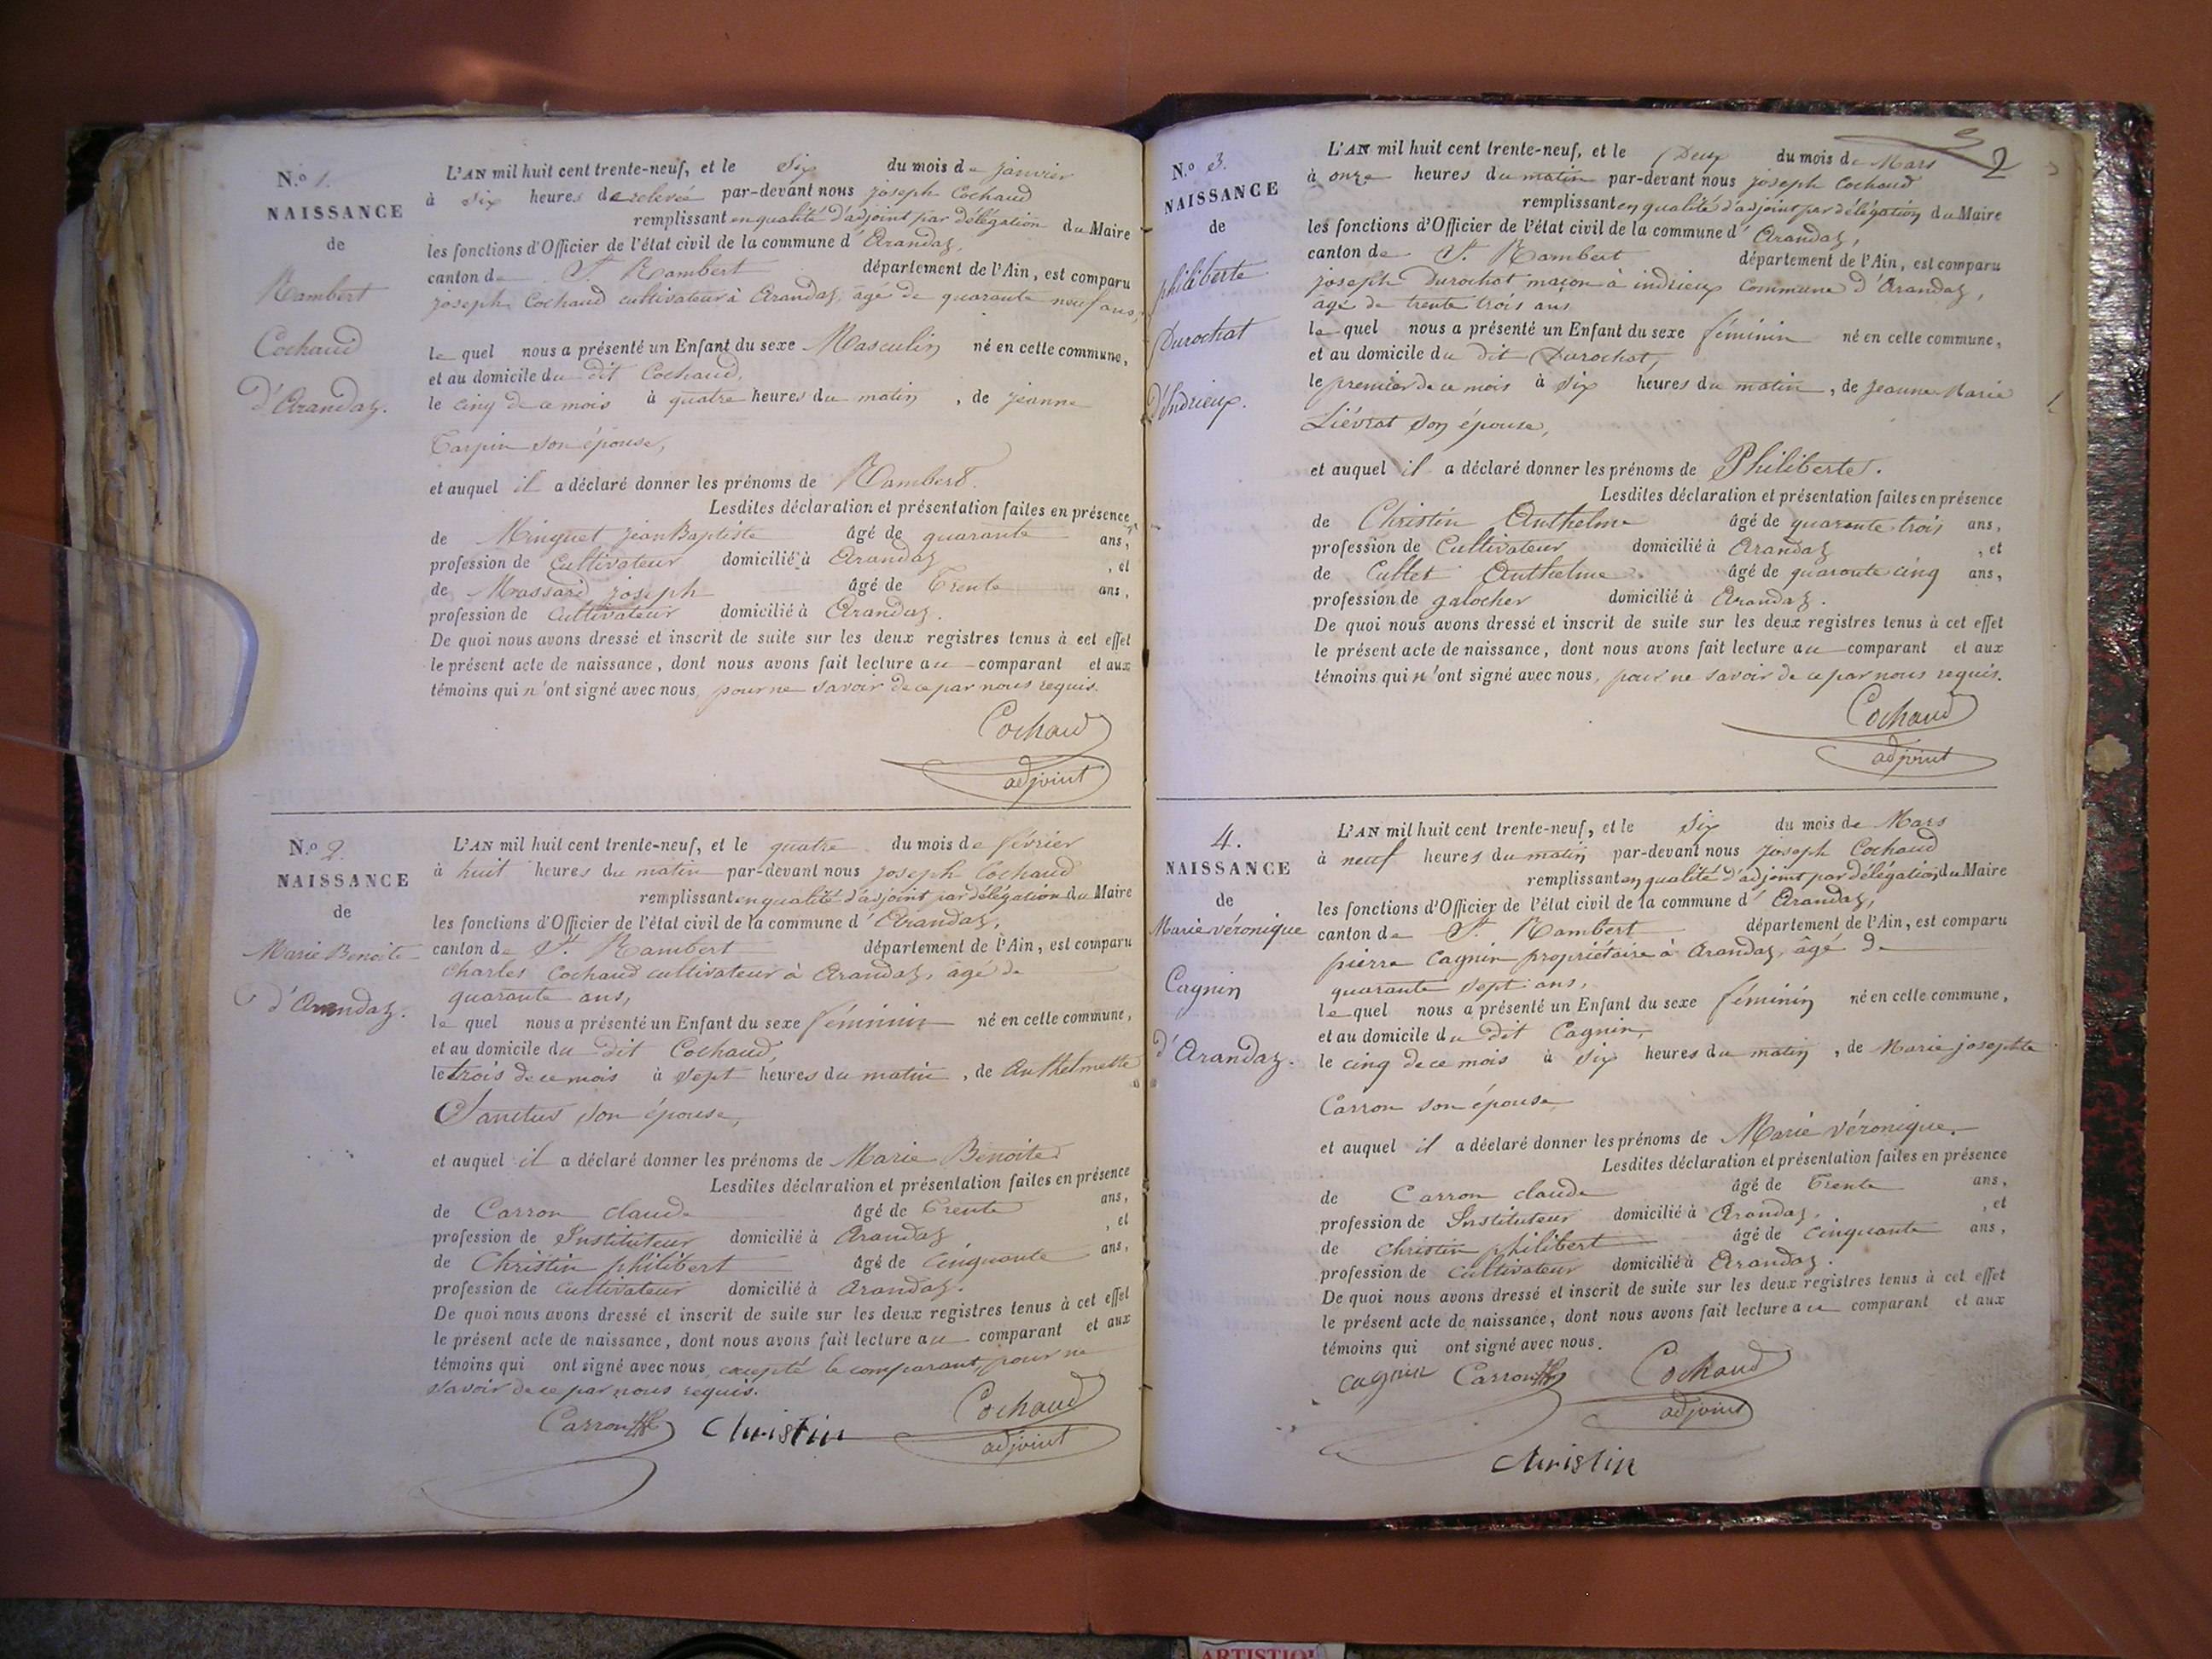 N.o 1.
NAISSANCE
de
Rambert
Cochaud
D'Arandaz.
L'AN mil huit cent trente-neuf, et le Six du mois de janvier
à six heures de relevée par-devant nous joseph Cochaud
remplissant en qualité d'adjoint par délégation du Maire
les fonctions d'Officier de l'état civil de la commune d'Arandaz,
canton de St. Rambert département de l'Ain, est comparu
joseph Cochaud cultivateur à Arandaz, âgé de quarante neuf ans,
le quel nous a présenté un Enfant du sexe Masculin né en cette commune,
et au domicile du dit Cochaud,
le cinq de ce mois à quatre heures du matin, de jeanne
Tarpin son épouse,
et auquel il a déclaré donner les prénoms de Rambert.
Lesdites déclaration et présentation faites en présence
de Minguet jean Baptiste âgé de quarante ans,
profession de Cultivateur domicilié à Arandaz, et
de Massard joseph âgé de Trente ans,
profession de Cultivateur domicilié à Arandaz.
De quoi nous avons dressé et inscrit de suite sur les deux registres tenus à cet effet
le présent acte de naissance, dont nous avons fait lecture au comparant et aux
témoins qui n'ont signé avec nous, pour ne savoir de ce par nous requis.
Cochaud
adjoint
N.o 2.
NAISSANCE
de
Marie Benoite
d'Arandaz.
L'AN mil huit cent trente-neuf, et le quatre du mois de février
à huit heures du matin par-devant nous joseph Cochaud
remplissant en qualité d'adjoint par délégation du Maire
les fonctions d'Officier de l'état civil de la commune d'Arandaz,
canton de St. Rambert département de l'Ain, est comparu
Charles Cochaud cultivateur à Arandaz, âgé de
quarante ans,
le quel nous a présenté un Enfant du sexe féminin né en cette commune,
et au domicile du dit Cochaud,
le trois de ce mois à sept heures du matin, de Anthelmette
Sanctus son épouse,
et auquel il a déclaré donner les prénoms de Marie Benoite
Lesdites déclaration et présentation faites en présence
de Carron claude âgé de Trente ans,
profession de Instituteur domicilié à Arandaz, et
de Christin philibert âgé de cinquante ans,
profession de cultivateur domicilié à Arandaz.
De quoi nous avons dressé et inscrit de suite sur les deux registres tenus à cet effet
le présent acte de naissance, dont nous avons fait lecture au comparant et aux
témoins qui ont signé avec nous, excepté le comparant, pour ne
savoir de ce par nous requis.
Carron Christin Cochaud
adjoint
2
N.o 3.
NAISSANCE
de
philiberte
Durochat
D'Indrieux.
L'AN mil huit cent trente-neuf, et le Deux du mois de Mars
à onze heures du matin par-devant nous joseph Cochaud
remplissant en qualité d'adjoint par délégation du Maire
les fonctions d'Officier de l'état civil de la commune d'Arandaz,
canton de St. Rambert département de l'Ain, est comparu
joseph Durochat maçon à indrieux Commune d'Arandaz,
âgé de trente trois ans
le quel nous a présenté un Enfant du sexe féminin né en cette commune,
et au domicile du dit Durochat,
le premier de ce mois à six heures du matin, de jeanne Marie
Liévrat son épouse,
et auquel il a déclaré donner les prénoms de Philiberte.
Lesdites déclaration et présentation faites en présence
de Christin Anthelme âgé de quarante trois ans,
profession de Cultivateur domicilié à Arandaz, et
de Cullet Anthelme âgé de quarante cinq ans,
profession de galocher domicilié à Arandaz.
De quoi nous avons dressé et inscrit de suite sur les deux registres tenus à cet effet
le présent acte de naissance, dont nous avons fait lecture au comparant et aux
témoins qui n'ont signé avec nous, pour ne savoir de ce par nous requis.
Cochaud
adjoint
4.
NAISSANCE
de
Marie véronique
Cagnin
d'Arandaz.
L'AN mil huit cent trente-neuf, et le Six du mois de Mars
à neuf heures du matin par-devant nous joseph Cochaud
remplissant en qualité d'adjoint par délégation du Maire
les fonctions d'Officier de l'état civil de la commune d'Arandaz,
canton de St. Rambert département de l'Ain, est comparu
pierre Cagnin propriétaire à Arandaz, âgé de
quarante sept ans,
le quel nous a présenté un Enfant du sexe féminin né en cette commune,
et au domicile du dit Cagnin,
le cinq de ce mois à six heures du matin, de Marie josephte
Carron son épouse,
et auquel il a déclaré donner les prénoms de Marie véronique.
Lesdites déclaration et présentation faites en présence
de Carron claude âgé de Trente ans,
profession de Instituteur domicilié à Arandaz, et
de Christin philibert âgé de cinquante ans,
profession de cultivateur domicilié à Arandaz.
De quoi nous avons dressé et inscrit de suite sur les deux registres tenus à cet effet
le présent acte de naissance, dont nous avons fait lecture au comparant et aux
témoins qui ont signé avec nous.
cagnin Carron Cochaud
adjoint
Christin